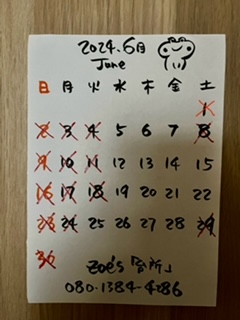 2024.6月
June
日 月 火 水 木 金 土
1
2 3 4 5 6 7 8
9 10 11 12 13 14 15
16 17 18 19 20 21 22
23 24 25 26 27 28 29
30
Zoe's「台所」
080-1384-4286